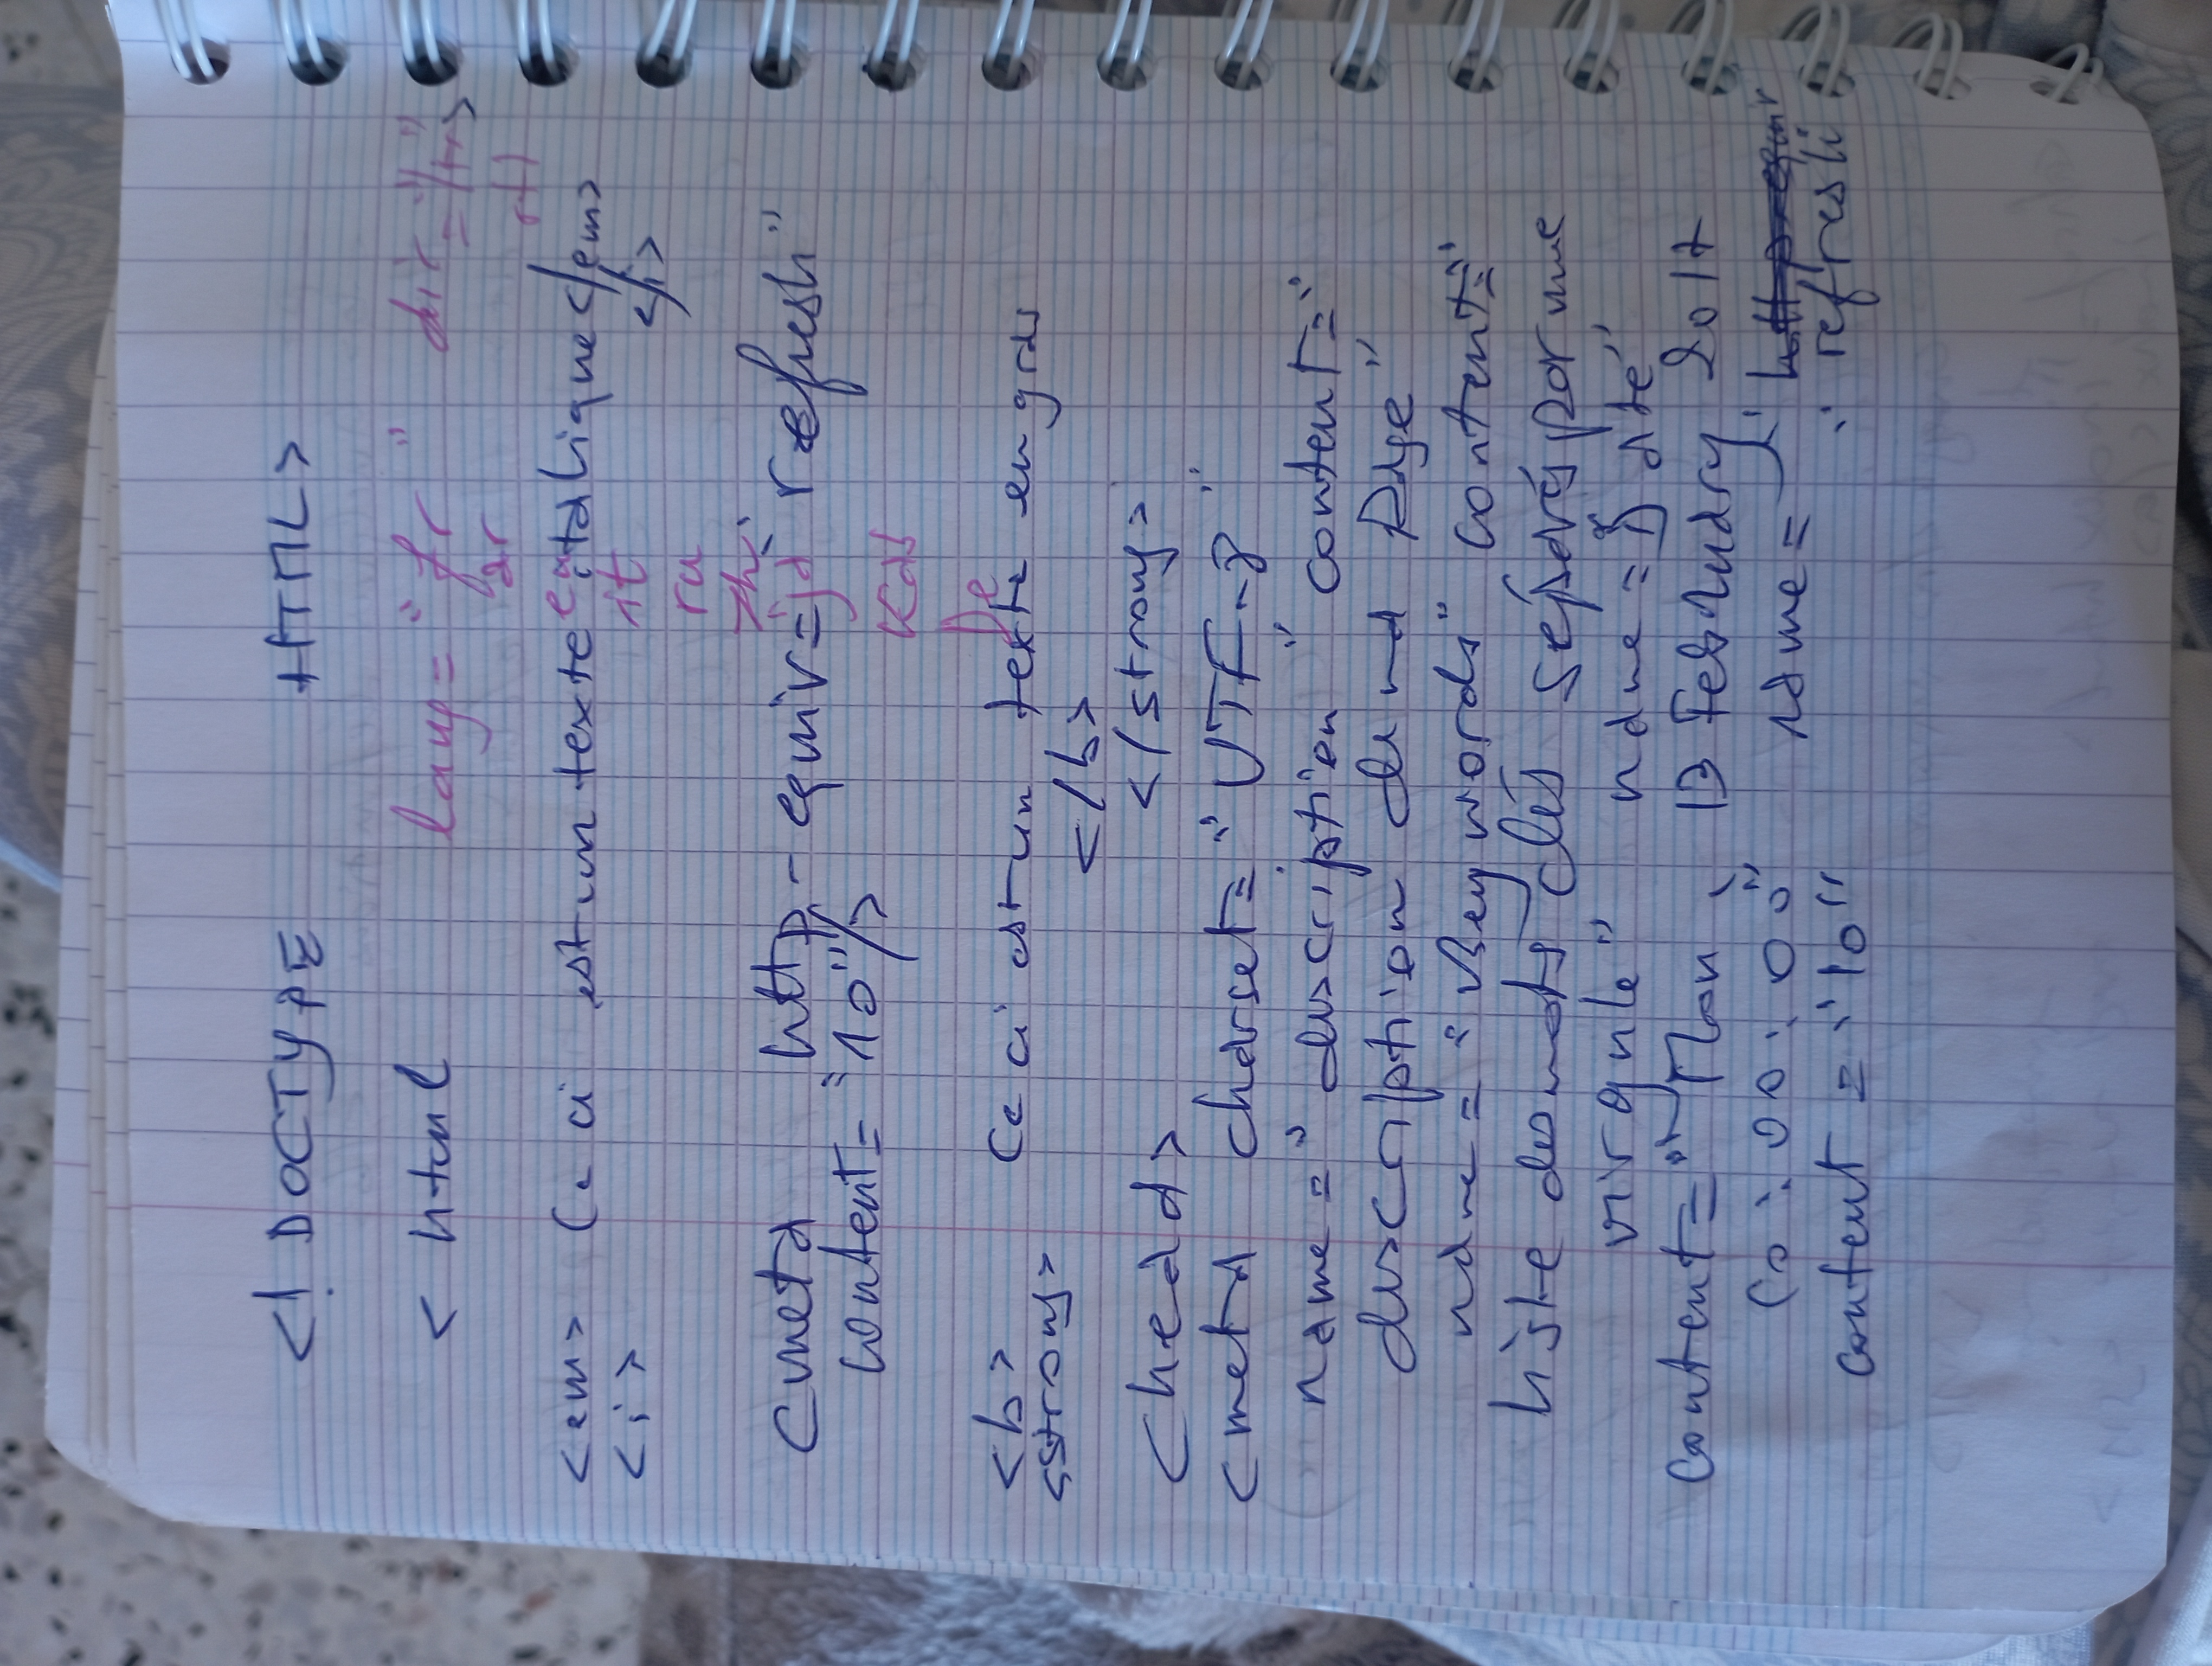 <! DOCTYPE HTML>
< html lang= "fr" dir="ltr">
ar rtl
<em> Ceci est un texte italique</em>
<i> </i>
en
it
ru
zh
ja
kab
<meta http-equiv= refresh"
content= "10"/>
<b> Ceci est un texte en gras
<strong> </b>
</strong>
<head>
<meta charset= "UTF-8"
name= "description" content="
description de ma page"
name= "keywords" content="
liste de mots clés séparés par une
virgule" name= "date"
content= " Mon, 13 February 2017
00:00:00" name= "
content = "10" refresh